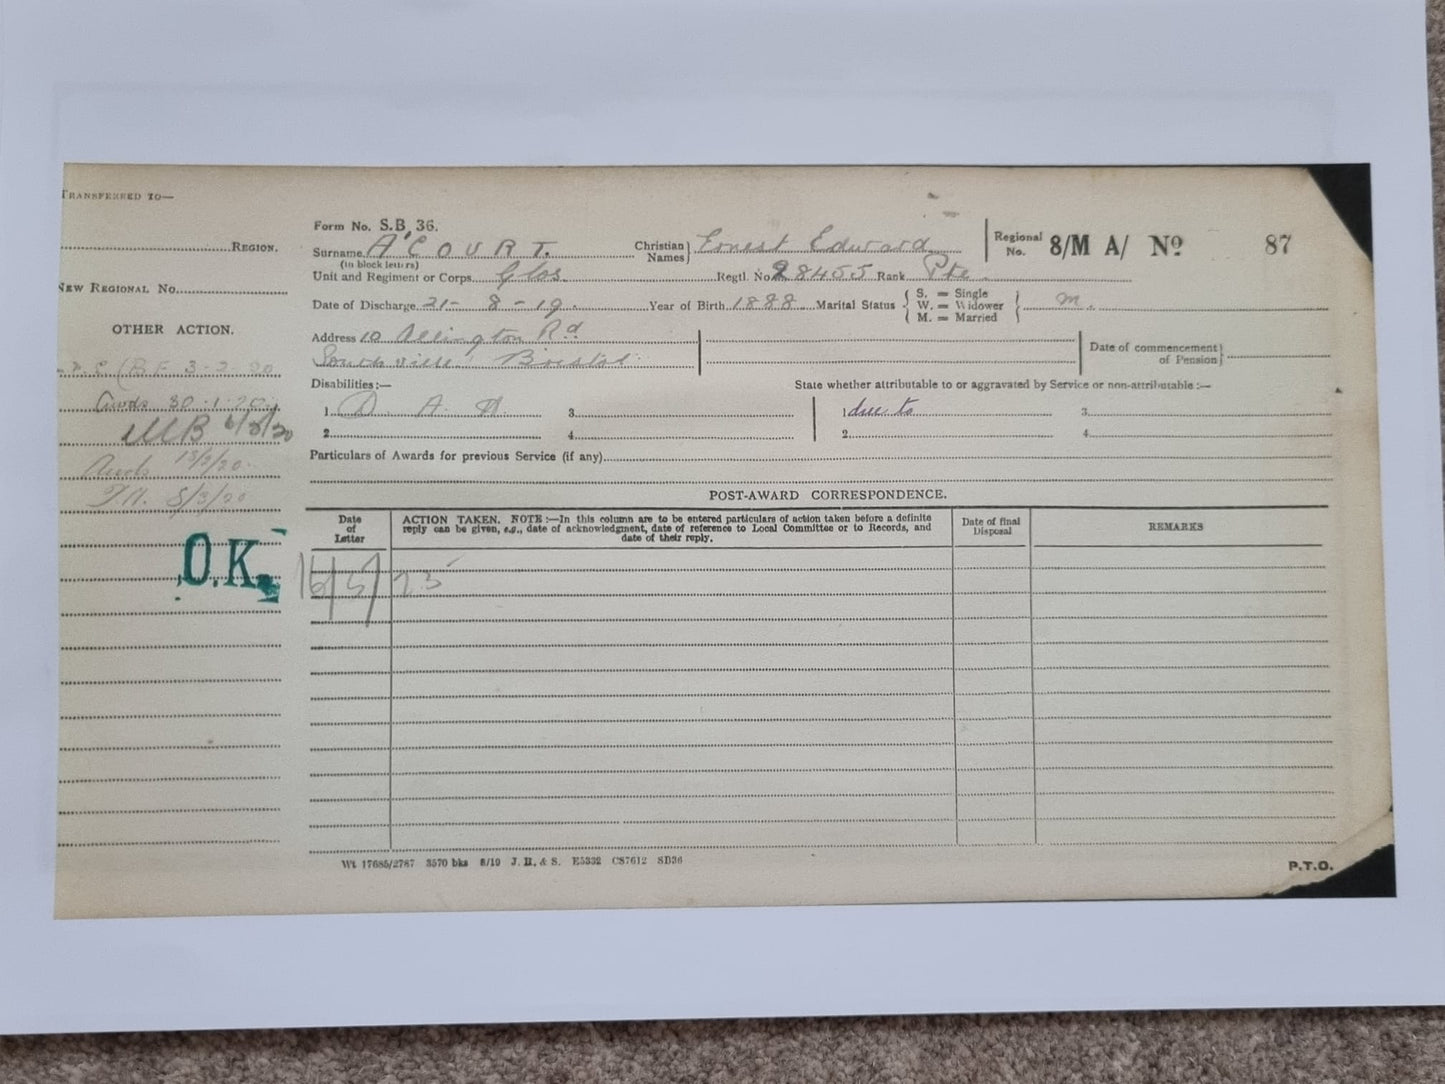 TRANSFERRED TO—
REGION.
NEW REGIONAL NO.
OTHER ACTION.
3-2-20
Awds 30.1.20.
MB 6/3/20
Awds 13/2/20.
8/3/20
O.K.
Form No. S.B. 36.
Surname A'COURT.
(in block letters)
Christian Names} Ernest Edward
Regional No. 8/M A/ No 87
Unit and Regiment or Corps Glos. Regtl. No. 28455 Rank Pte
Date of Discharge 21-8-19. Year of Birth 1888 Marital Status { S. = Single W. = Widower M. = Married } m.
Address 10 Allington Rd
Southville Bristol.
Date of commencement of Pension}
Disabilities:— State whether attributable to or aggravated by Service or non-attributable:—
1 D. A. H. 3 1 due to 3
2 4 2 4
Particulars of Awards for previous Service (if any)
POST-AWARD CORRESPONDENCE.
Date of Letter
ACTION TAKEN. NOTE:—In this column are to be entered particulars of action taken before a definite
reply can be given, e.g., date of acknowledgment, date of reference to Local Committee or to Records, and
date of their reply.
Date of final Disposal
REMARKS
16/5/23
Wt 17685/2787 3570 bks 8/19 J. B. & S. E5332 CS7612 SB36
P.T.O.